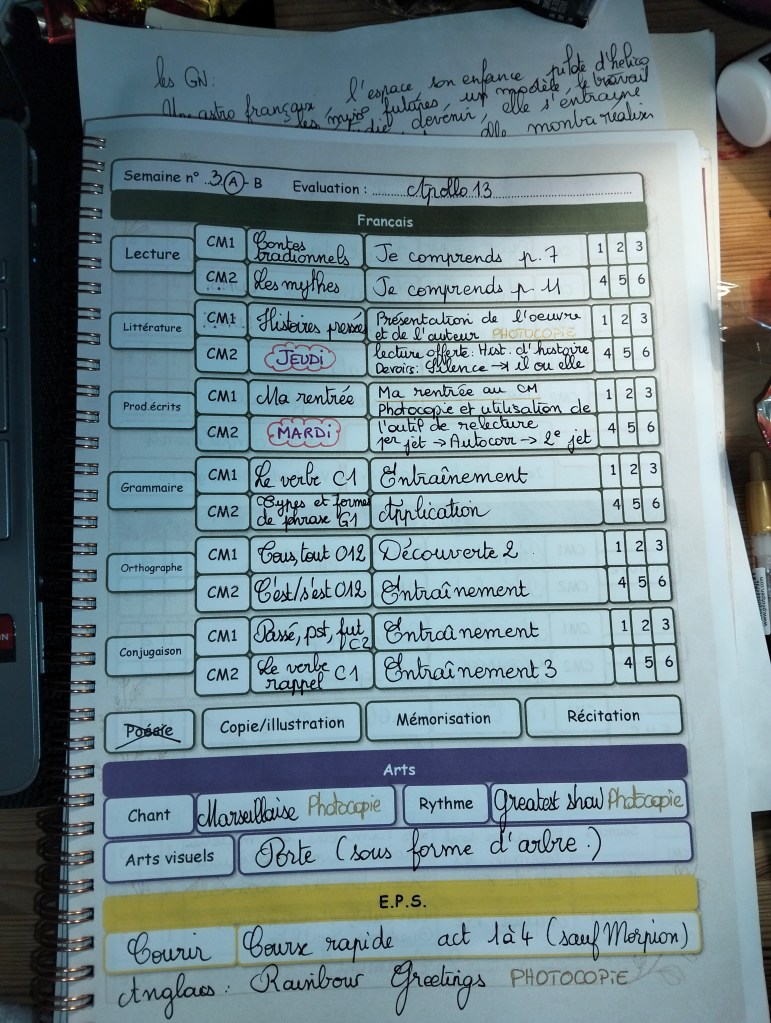 les GN:
l'espace, son enfance, pilote d'hélico
Un astro français, les futures, un modèle, le travail
devenir, elle s'entraîne
Semaine n° 3 A - B Evaluation : Apollo 13
Francais
Lecture CM1 Contes tradionnels Je comprends p. 7 1 2 3
CM2 Les mythes Je comprends p. 11 4 5 6
Littérature CM1 Histoires pressées Présentation de l'oeuvre et de l'auteur PHOTOCOPIE 1 2 3
CM2 JEUDI lecture offerte : Hist. d'histoire 4 5 6
Devoirs : Silence → il ou elle
Prod.écrits CM1 Ma rentrée Ma rentrée au CM 1 2 3
Photocopie et utilisation de
CM2 MARDI l'outil de relecture 4 5 6
1er jet → Autocorr → 2e jet
Grammaire CM1 Le verbe C1 Entraînement 1 2 3
CM2 Types et formes de phrase G1 Application 4 5 6
Orthographe CM1 Tous, tout O12 Découverte 2 1 2 3
CM2 C'est/s'est O12 Entraînement 4 5 6
Conjugaison CM1 Passé, pst, fut C2 Entraînement 1 2 3
CM2 Le verbe rappel C1 Entraînement 3 4 5 6
Poésie Copie/illustration Mémorisation Récitation
Arts
Chant Marseillaise Photocopie Rythme Greatest show Photocopie
Arts visuels Porte (sous forme d'arbre ?)
E.P.S.
Courir Course rapide act 1 à 4 (sauf Morpion)
Anglais : Rainbow Greetings PHOTOCOPIE